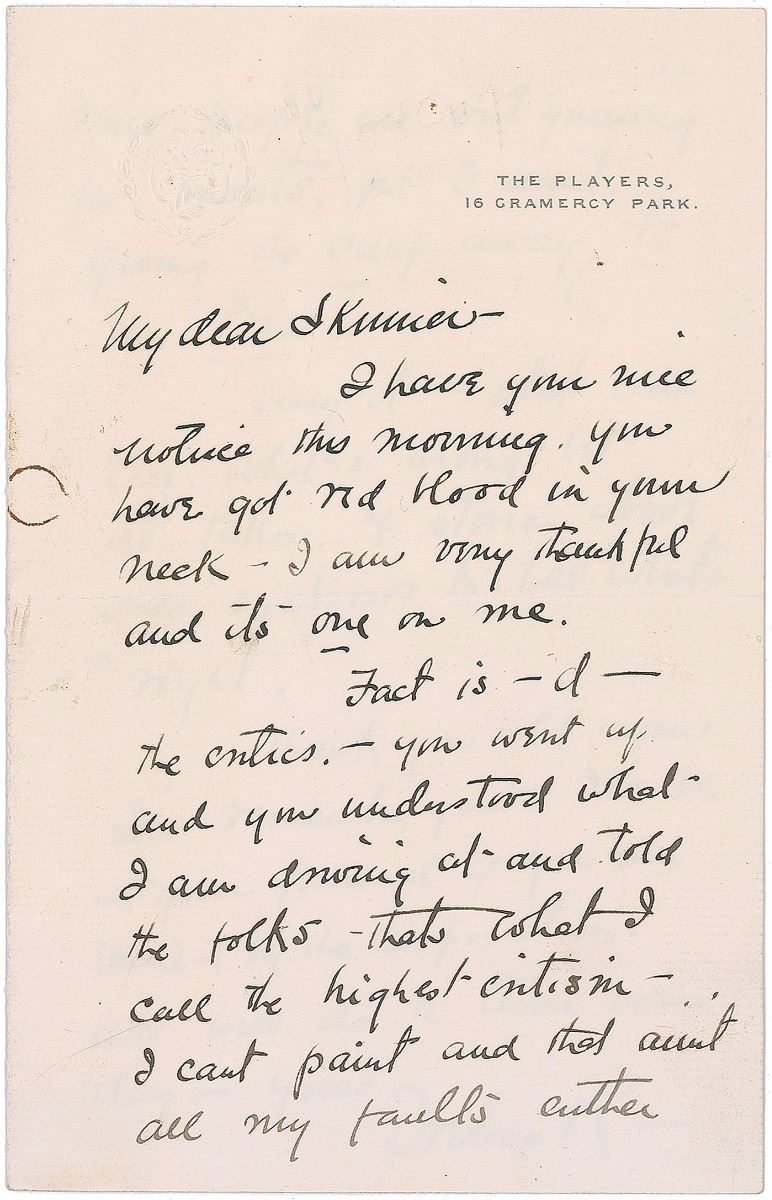 THE PLAYERS,
16 GRAMERCY PARK.
My dear Skinner—
I have your nice
notice this morning. You
have got red blood in your
neck – I am very thankful
and its one on me.
Fact is – d —
the critics. – you went up
and you understood what
I am driving at and told
the folks – thats what I
call the highest critism –
I cant paint and that aint
all my faults either